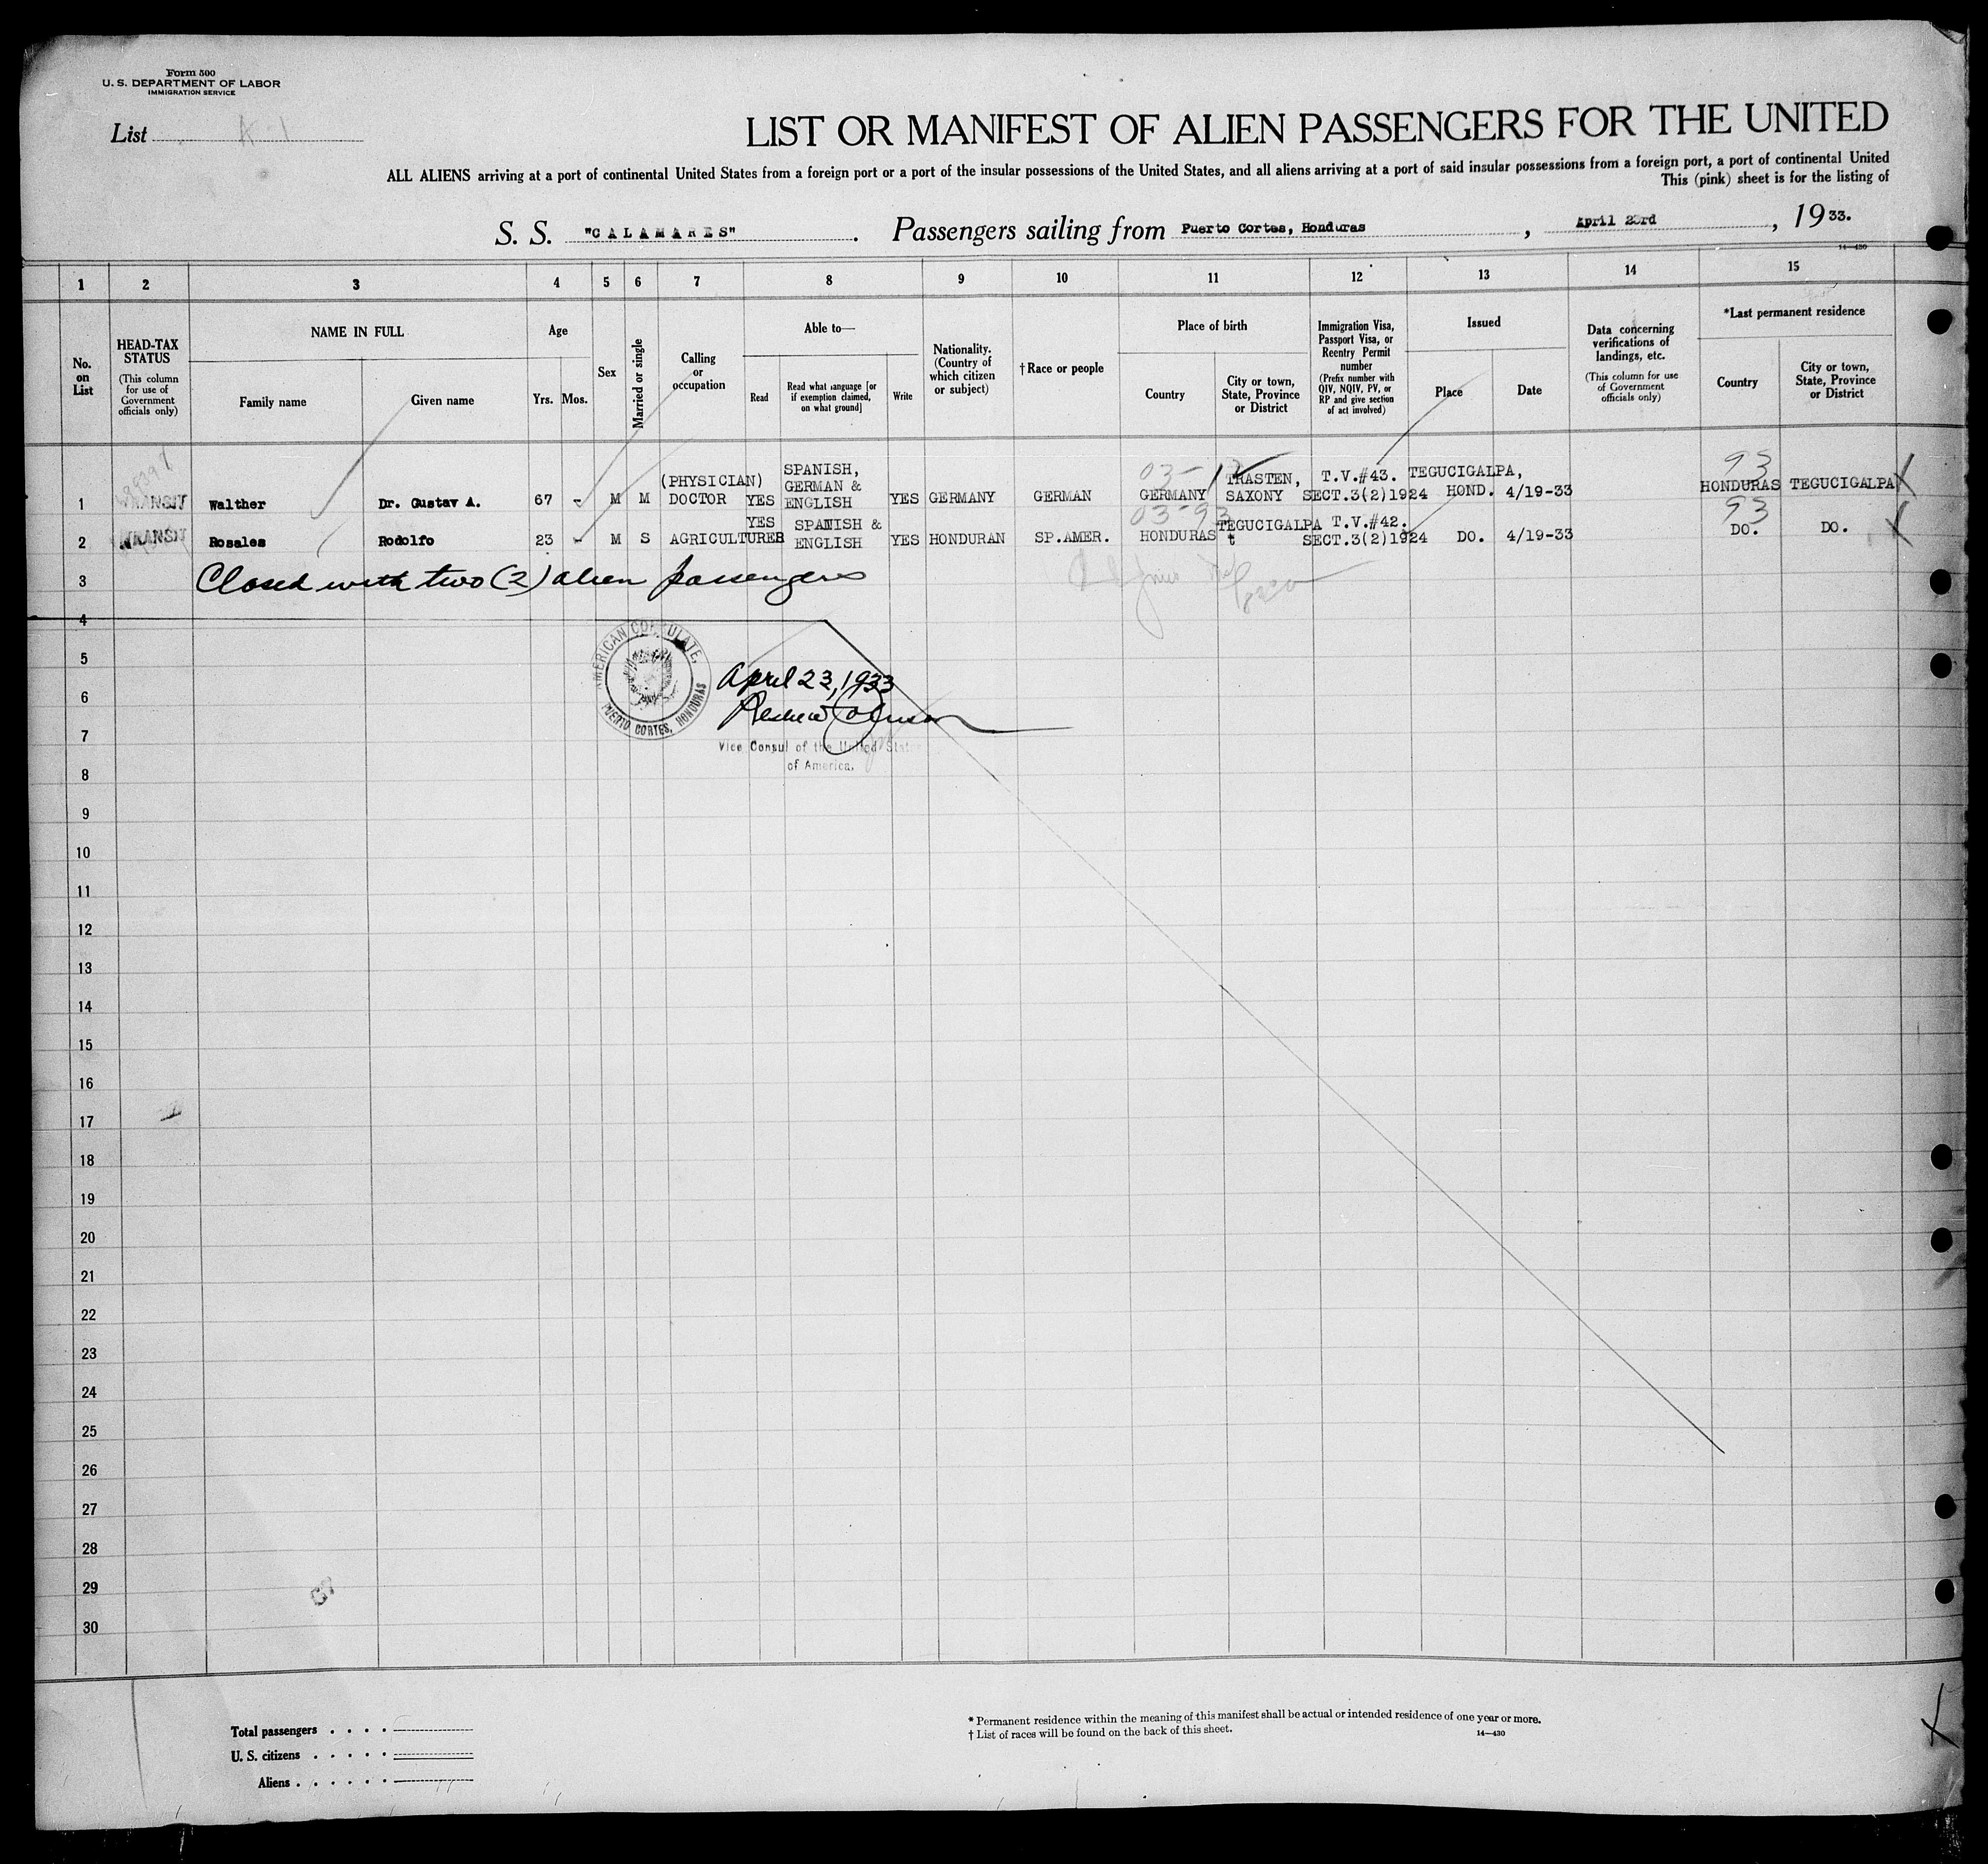 Form 500
U. S. DEPARTMENT OF LABOR
IMMIGRATION SERVICE
List K-1
LIST OR MANIFEST OF ALIEN PASSENGERS FOR THE UNITED
ALL ALIENS arriving at a port of continental United States from a foreign port or a port of the insular possessions of the United States, and all aliens arriving at a port of said insular possessions from a foreign port, a port of continental United
This (pink) sheet is for the listing of
S. S. "CALAMARES". Passengers sailing from Puerto Cortes, Honduras, April 23rd, 1933.
14—430
1 2 3 4 5 6 7 8 9 10 11 12 13 14 15
No. on List
HEAD-TAX STATUS (This column for use of Government officials only)
NAME IN FULL
Family name Given name
Age
Yrs. Mos.
Sex
Married or single
Calling or occupation
Able to—
Read Read what language [or if exemption claimed, on what ground] Write
Nationality. (Country of which citizen or subject)
†Race or people
Place of birth
Country City or town, State, Province or District
Immigration Visa, Passport Visa, or Reentry Permit number (Prefix number with QIV, NQIV, PV, or RP and give section of act involved)
Issued
Place Date
Data concerning verifications of landings, etc. (This column for use of Government officials only)
*Last permanent residence
Country City or town, State, Province or District
03- 93
(PHYSICIAN) SPANISH, GERMAN & TRASTEN, T.V.#43. TEGUCIGALPA,
1 TRANSIT Walther Dr. Gustav A. 67 - M M DOCTOR YES ENGLISH YES GERMANY GERMAN GERMANY SAXONY SECT.3(2)1924 HOND. 4/19-33 HONDURAS TEGUCIGALPA
03-93 93
YES SPANISH & TEGUCIGALPA T.V.#42.
2 TRANSIT Rosales Rodolfo 23 - M S AGRICULTURER ENGLISH YES HONDURAN SP.AMER. HONDURAS SECT.3(2)1924 DO. 4/19-33 DO. DO.
3 Closed with two (2) alien passengers
4
5
6
7
8
9
10
11
12
13
14
15
16
17
18
19
20
21
22
23
24
25
26
27
28
29
30
AMERICAN CONSULATE,
PUERTO CORTES, HONDURAS
April 23, 1933
Vice Consul of the United States
of America.
Total passengers
U. S. citizens
Aliens
* Permanent residence within the meaning of this manifest shall be actual or intended residence of one year or more.
† List of races will be found on the back of this sheet.
14—430